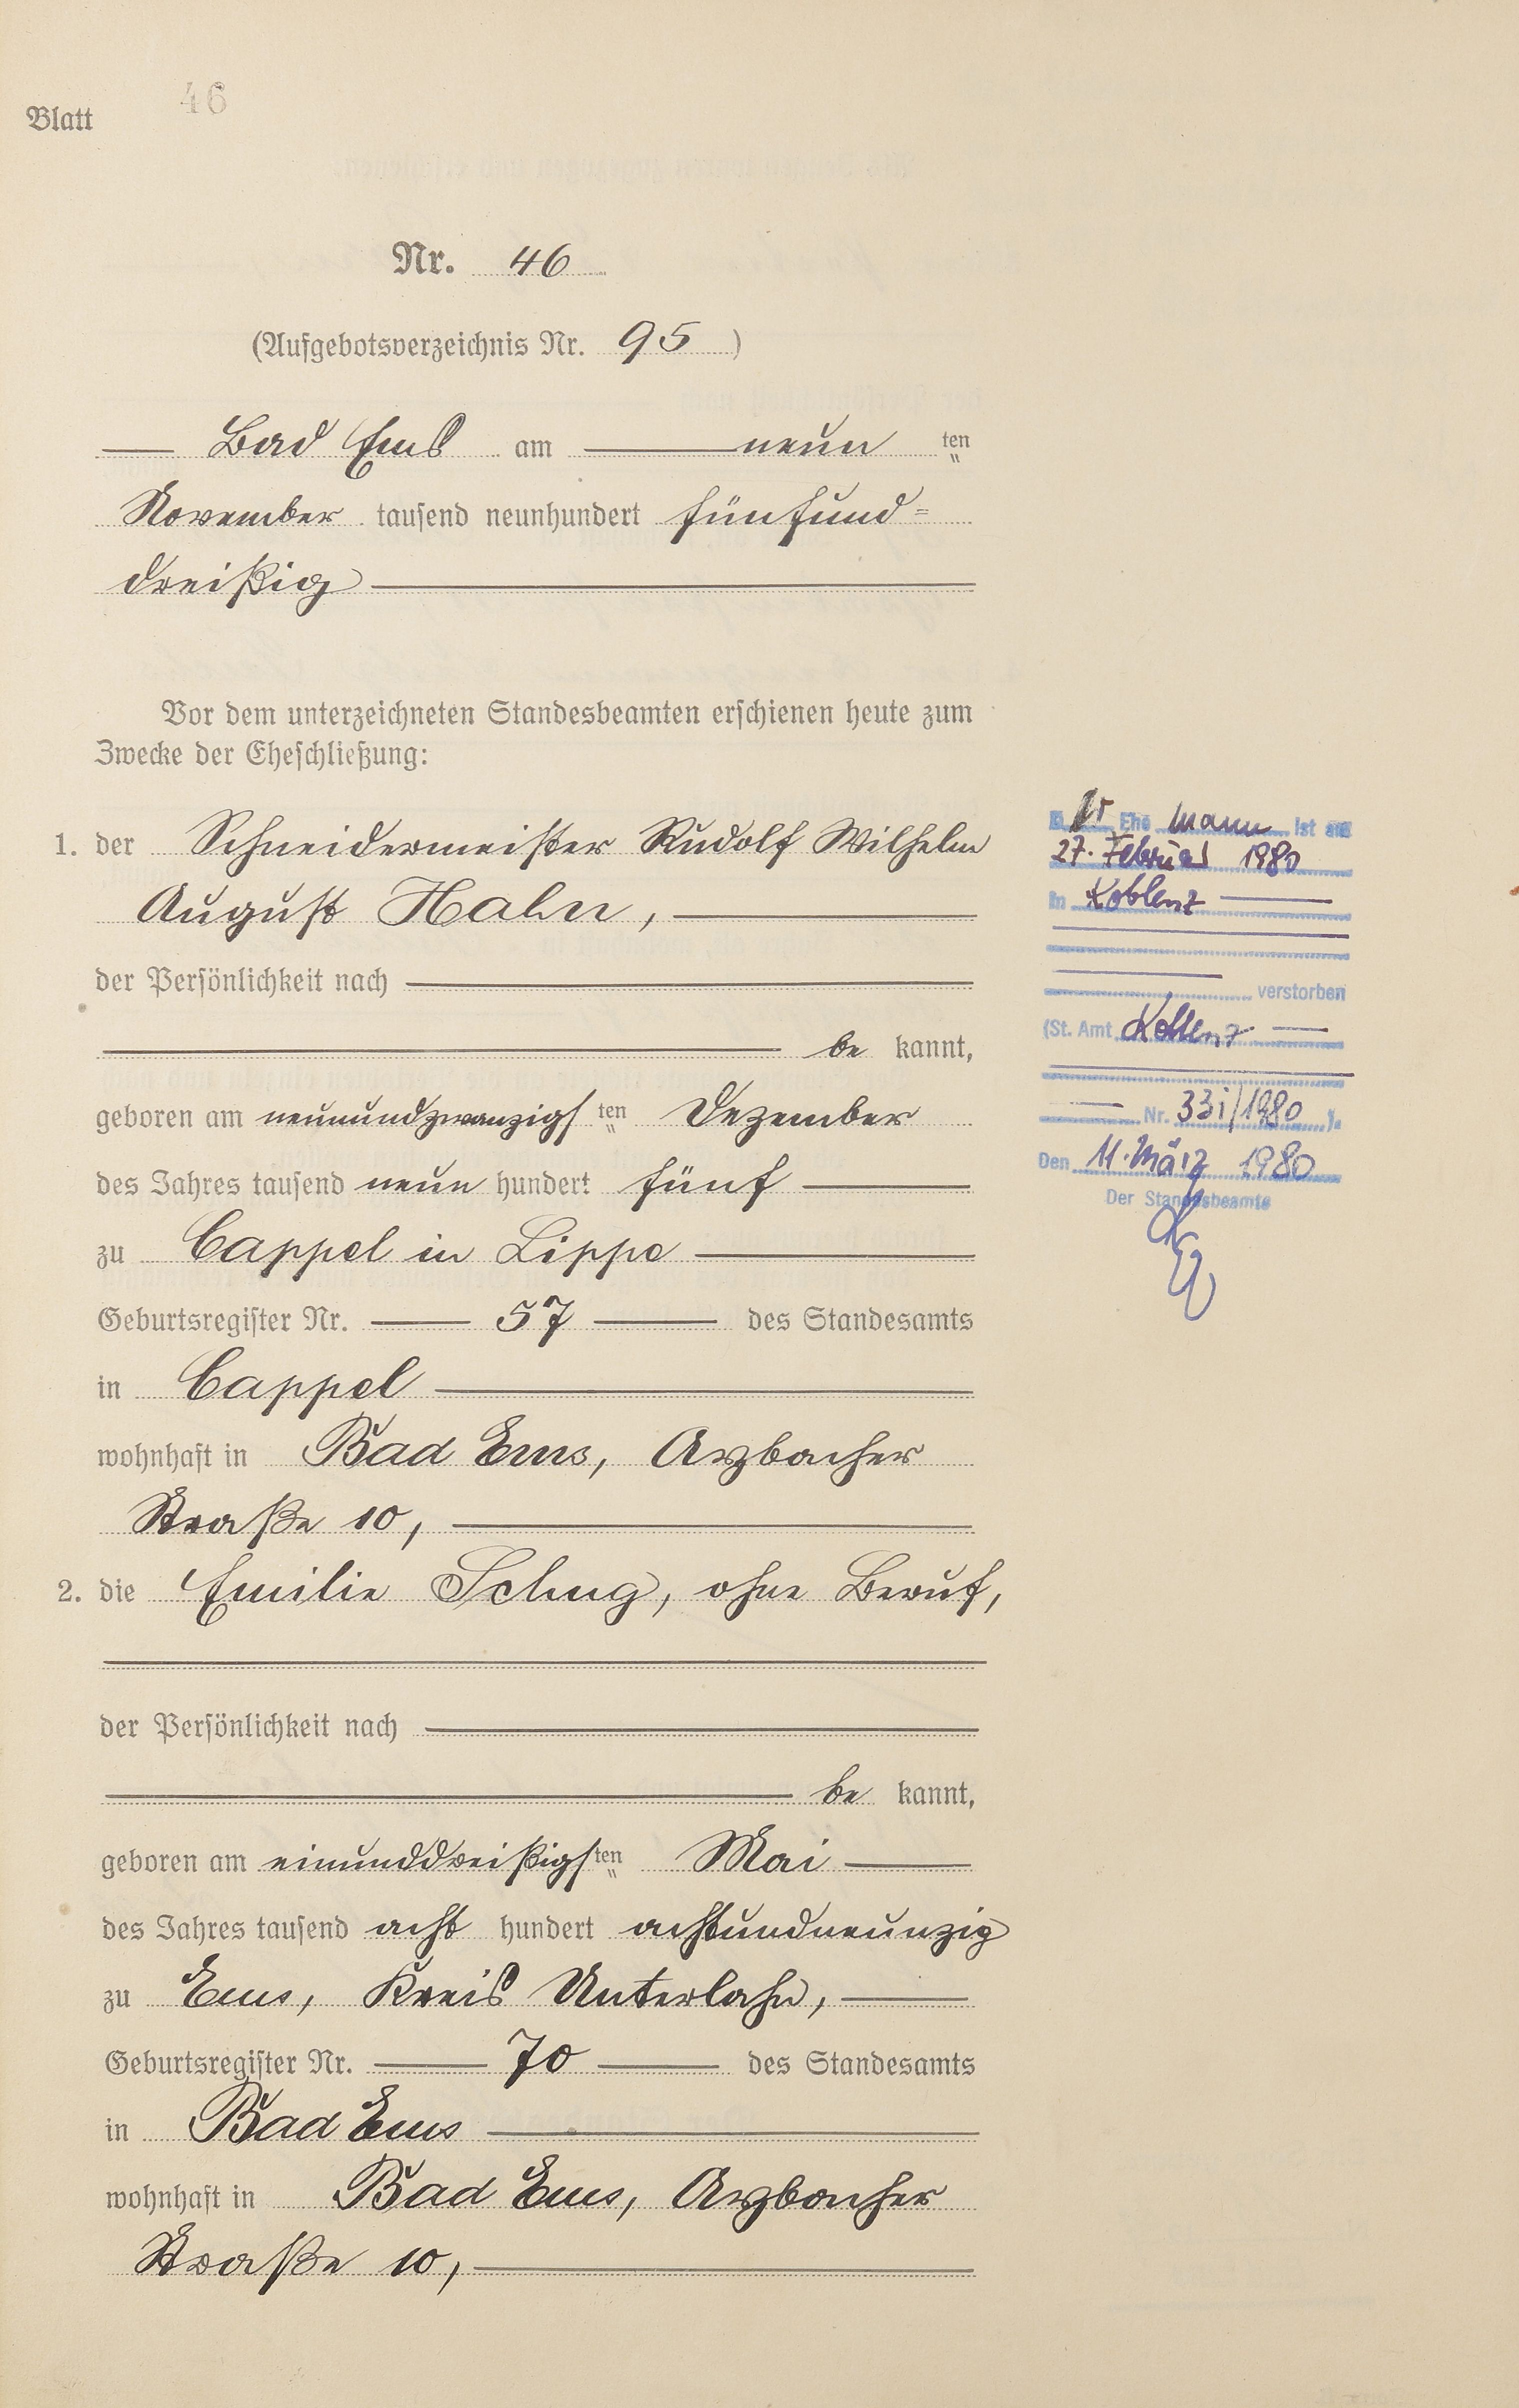 Blatt 46
Nr. 46
(Aufgebotsverzeichnis Nr. 95)
Bad Ems am neun ten
November tausend neunhundert fünfund=
dreißig
Vor dem unterzeichneten Standesbeamten erschienen heute zum
Zwecke der Eheschließung:
1. der Schneidermeister Rudolf Wilhelm
August Hahn,
der Persönlichkeit nach
be kannt,
geboren am neunundzwanzigs ten Dezember
des Jahres tausend neun hundert fünf
zu Cappel in Lippe
Geburtsregister Nr. 57 des Standesamts
in Cappel
wohnhaft in Bad Ems, Arzbacher
Straße 10,
2. die Emilie Schug, ohne Beruf,
der Persönlichkeit nach
be kannt,
geboren am einunddreißigs ten Mai
des Jahres tausend acht hundert achtundneunzig
zu Ems, Kreis Unterlahn,
Geburtsregister Nr. 70 des Standesamts
in Bad Ems
wohnhaft in Bad Ems, Arzbacher
Straße 10,
Der Ehe mann ist am
27. Februar 1980
in Koblenz
verstorben
(St. Amt Koblenz
Nr. 331/1980 ).
Den 11. März 1980
Der Standesbeamte